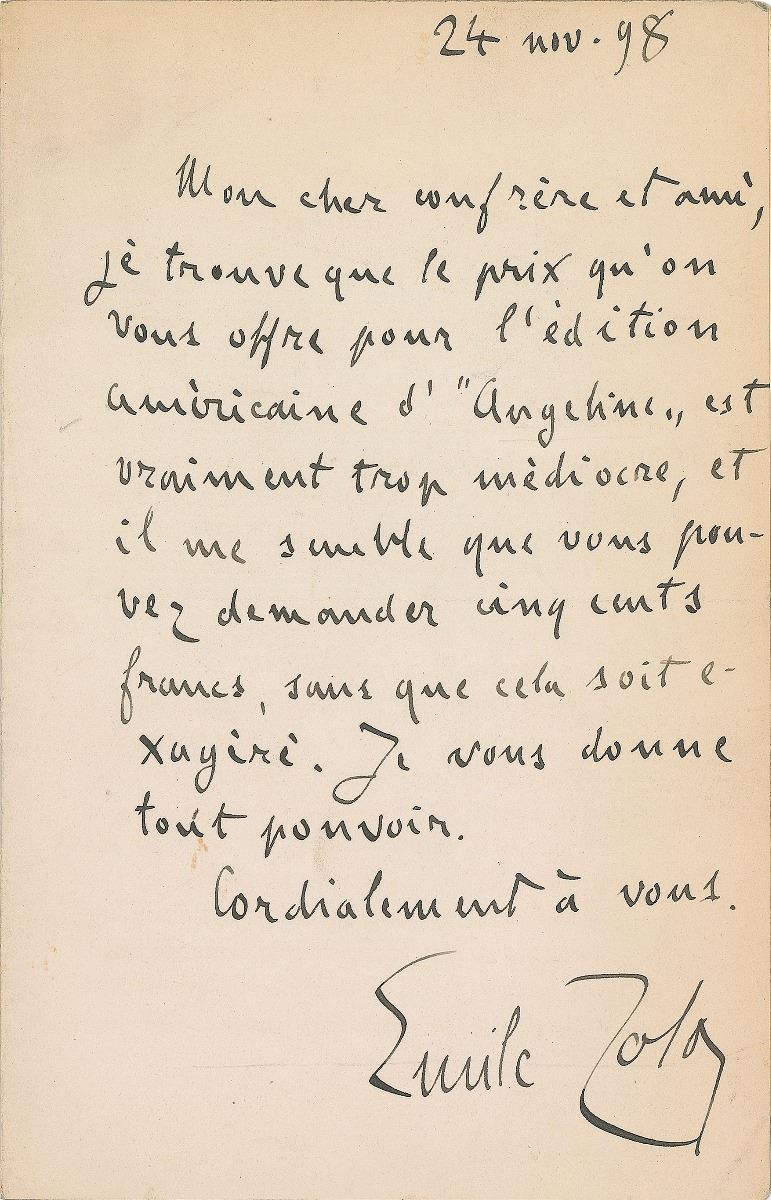 24 nov. 98
Mon cher confrère et ami,
je trouve que le prix qu'on
vous offre pour l'édition
américaine d'"Angeline„ est
vraiment trop médiocre, et
il me semble que vous pou-
vez demander cinq cents
francs, sans que cela soit e-
xagéré. Je vous donne
tout pouvoir.
Cordialement à vous.
Emile Zola